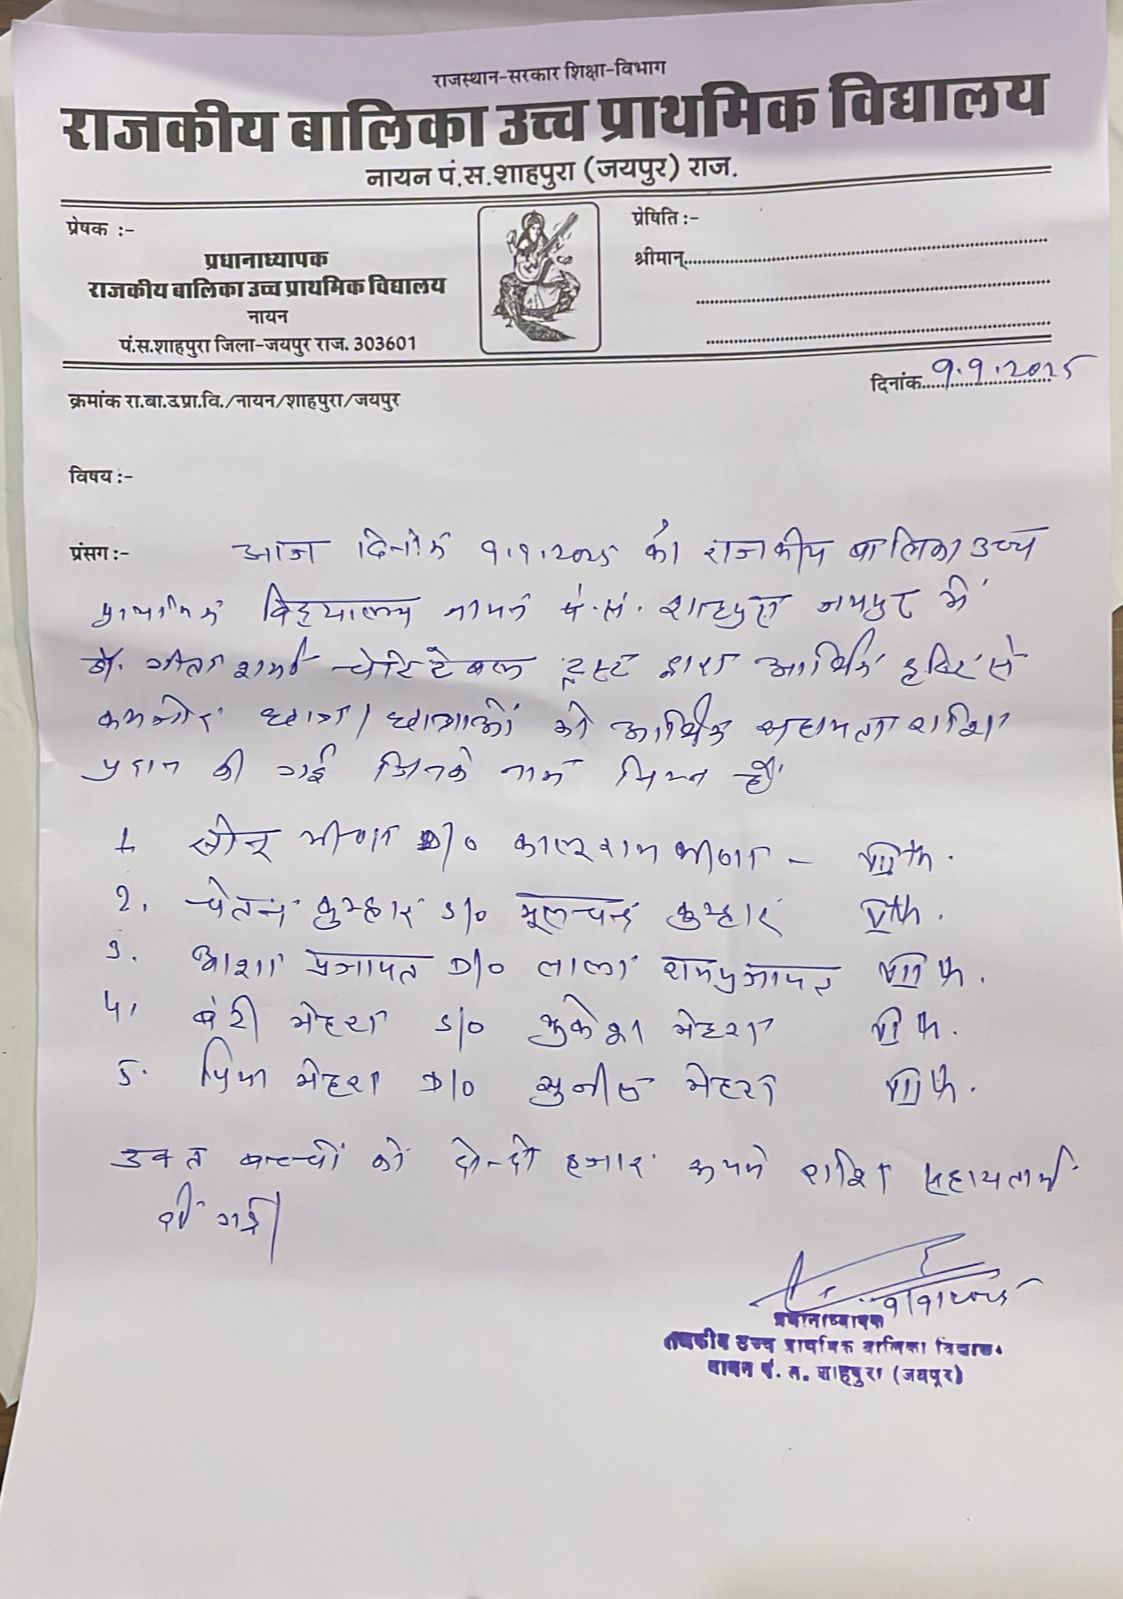 राजस्थान-सरकार शिक्षा-विभाग
राजकीय बालिका उच्च प्राथमिक विद्यालय
नायन पं.स.शाहपुरा (जयपुर) राज.
प्रेषक :-
प्रधानाध्यापक
राजकीय बालिका उच्च प्राथमिक विद्यालय
नायन
पं.स.शाहपुरा जिला-जयपुर राज. 303601
प्रेषिति :-
श्रीमान्
दिनांक 9.9.2025
क्रमांक रा.बा.उ.प्रा.वि./नायन/शाहपुरा/जयपुर
विषय :-
प्रंसग :- आज दिनांक 9.9.2025 को राजकीय बालिका उच्च
प्राथमिक विद्यालय नायन पं.सं. शाहपुरा जयपुर में
डॉ. गीता शर्मा चेरिटेबल ट्रस्ट द्वारा आर्थिक दृष्टि से
कमजोर छात्र/छात्राओं को आर्थिक सहायता राशि
प्रदान की गई जिनके नाम निम्न हैं
1. सोनू मीणा D/O कालूराम मीणा - VIIth.
2. चेतन कुम्हार S/O मूलचन्द कुम्हार Vth.
3. आशा प्रजापत D/O लाला रामप्रजापत VIIth.
4. बंटी मेहरा S/O मुकेश मेहरा
5. प्रिया मेहरा D/O सुनील मेहरा VIIth.
उक्त बच्चों को दो-दो हजार रूपये राशि सहायतार्थ
दी गई।
9/9/2025
प्रधानाध्यापक
राजकीय उच्च प्राथमिक बालिका विद्यालय
नायन पं. स. शाहपुरा (जयपुर)